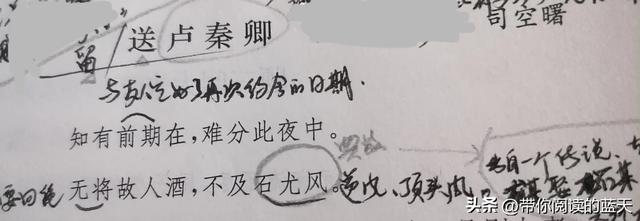 司空曙
留 送卢秦卿
与友人定好了再次约会的日期.
知有前期在，难分此夜中。
典故
无将故人酒，不及石尤风。逆风、顶头风。
来自一个传说，
头条 @带你阅读的蓝天